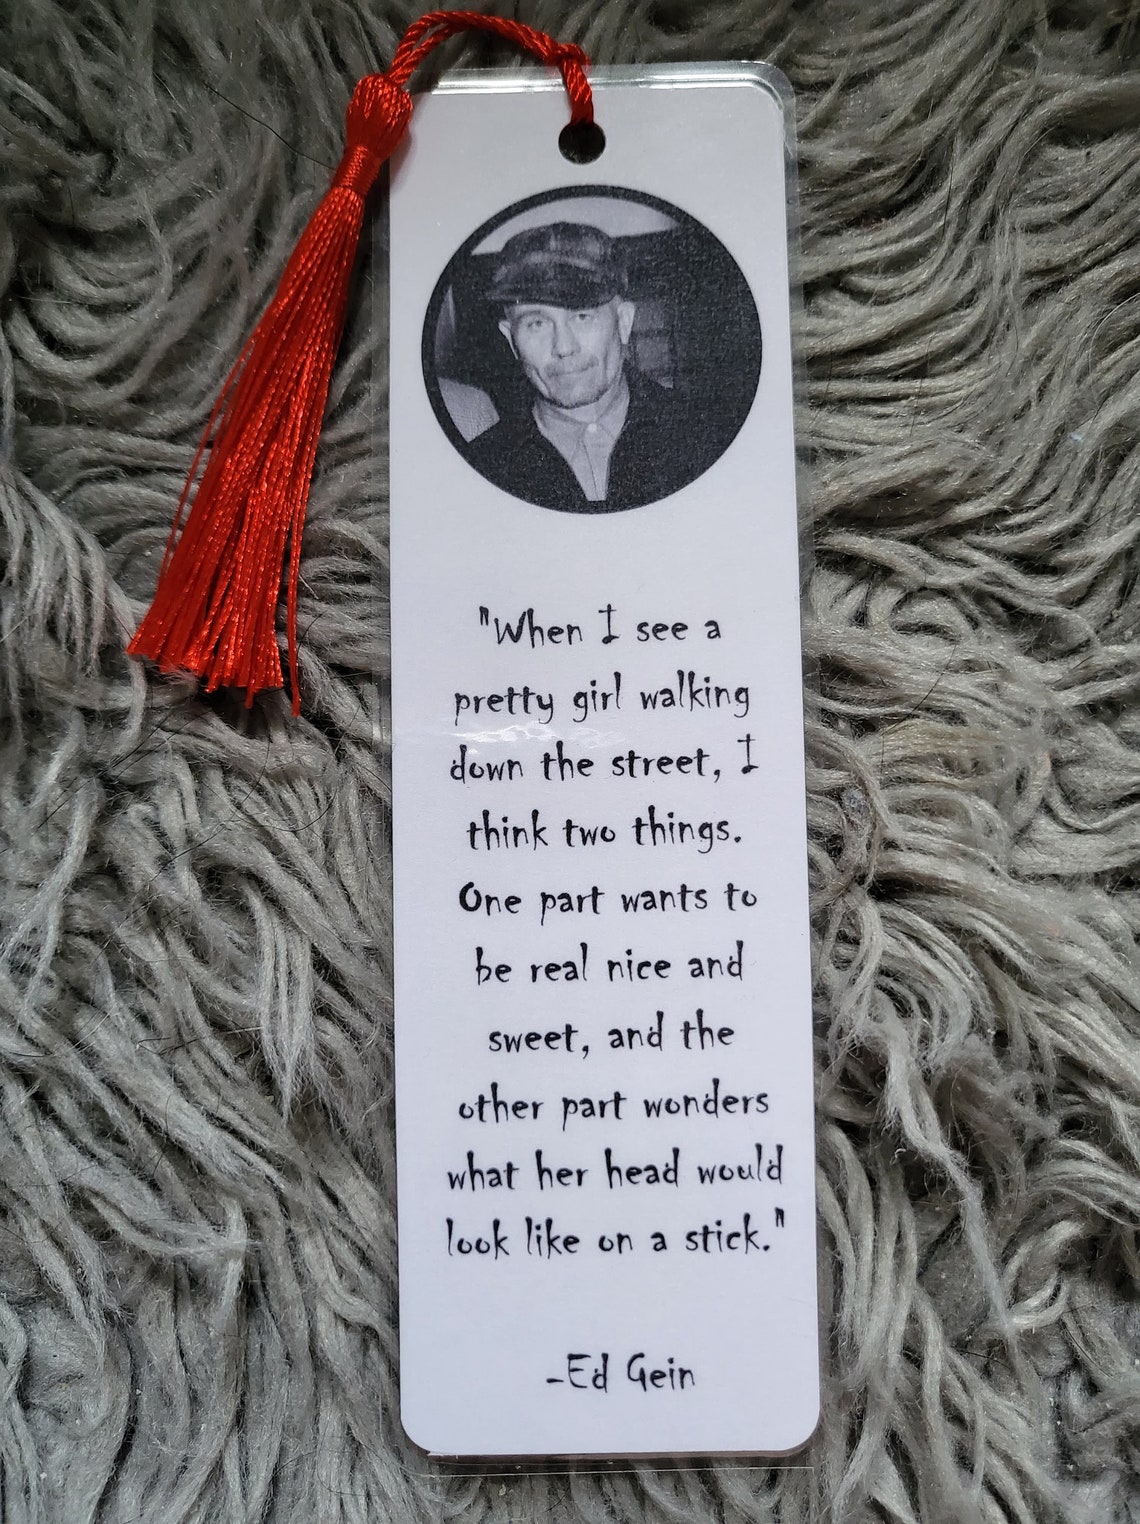 "When I see a
pretty girl walking
down the street, I
think two things.
One part wants to
be real nice and
sweet, and the
other part wonders
what her head would
look like on a stick."
-Ed Gein